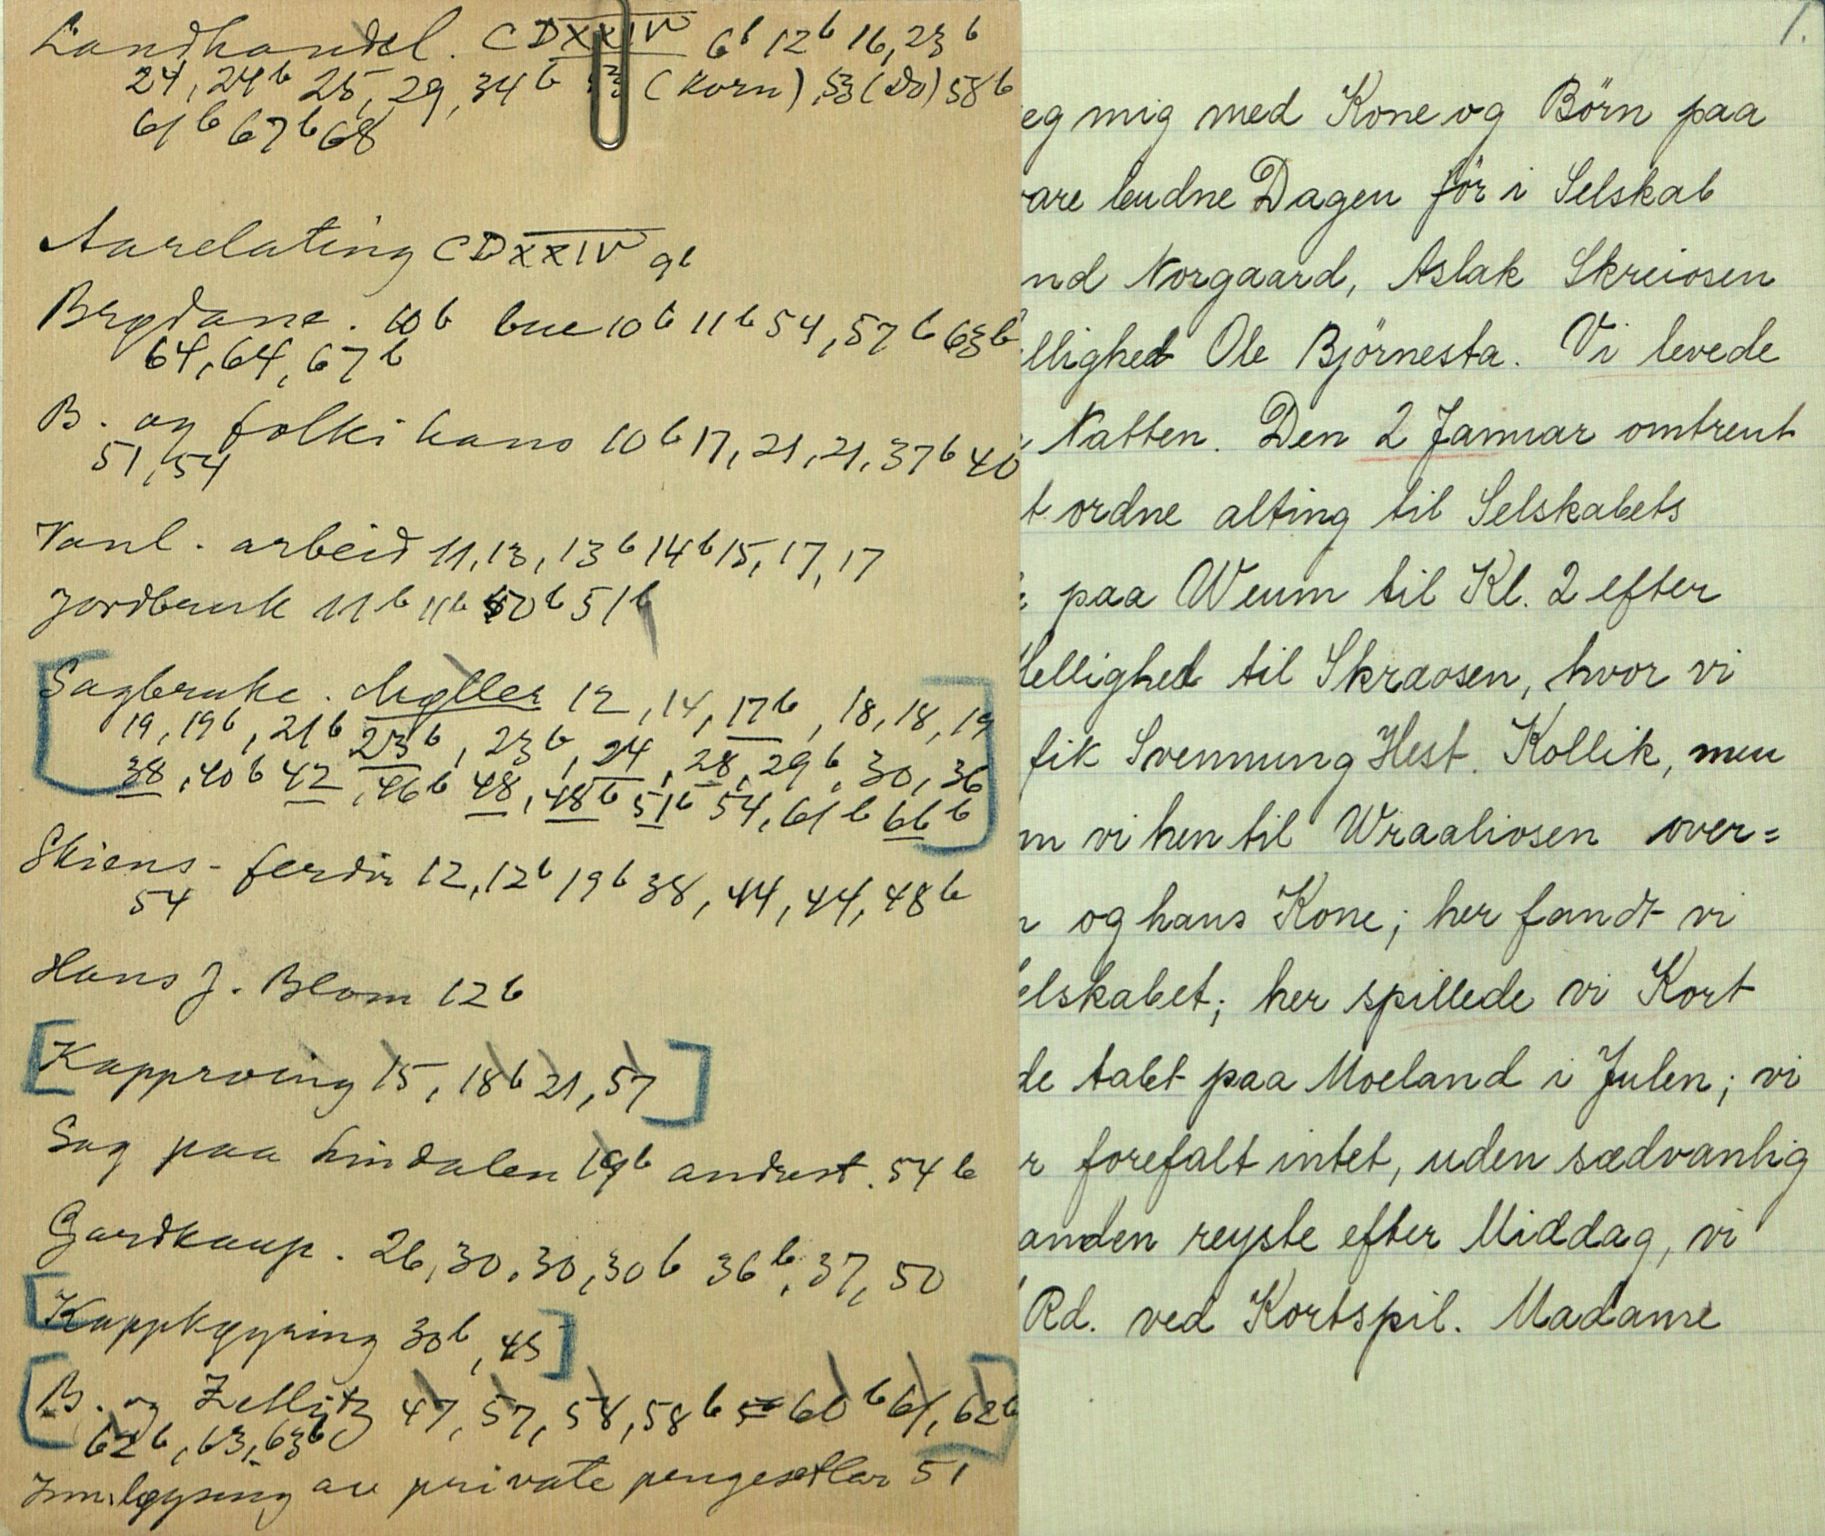 Landhandel. CDXXIV 6b 12b 16, 23b
24, 24b 25, 29, 34b 53 (Korn), 53 (do) 58b
61b 67b 68
Aarelating CDXXIV 9b
Brødane. 10b bue 10b 11b 54, 57b 63b
64, 64, 67b
B. og folki hans 10b 17, 21, 21, 37b 40
51, 54
Vanl. arbeid 11, 13, 13b 14b 15, 17, 17
Jordbruk 11b 11b 50b 51b
Sagbruke. Møller 12, 14, 17b, 18, 18, 19
19, 19b, 21b 23b, 23b, 24, 28, 29b, 30, 36
38, 40b 42, 46b 48, 48b 51b 54, 61b 66b
Skiens-ferdir 12, 12b 19b 38, 44, 44, 48b
54
Hans J. Blom 12b
[Kapproing 15, 18b 21, 57]
Sag paa Lindalen 19b andust. 54b
Gardkaup. 26, 30, 30, 30b 36b, 37, 50
[Kappkøyring 30b, 45]
[B. og Zetlitz 47, 57, 58, 58b 60b 61, 62b
62b, 63, 63b]
Innløysing av private pengesetlar 51
1.
eg mig med Kone og Börn paa
are budne Dagen för i Selskab
nd Norgaard, Aslak Skreiosen
llighed Ole Björnesta. Vi levede
Natten. Den 2 Januar omtrent
t ordne alting til Selskabets
paa Weum til Kl. 2 efter
ellighed til Skraosen, hvor vi
fik Svennung Hest. Kollik, men
m vi hen til Wraaliosen over=
og hans Kone; her fandt vi
elskabet; her spillede vi Kort
de tabt paa Moeland i Julen; vi
r forefalt intet, uden sædvanlig
anden reyste efter Middag, vi
Rd. ved Kortspil. Madame